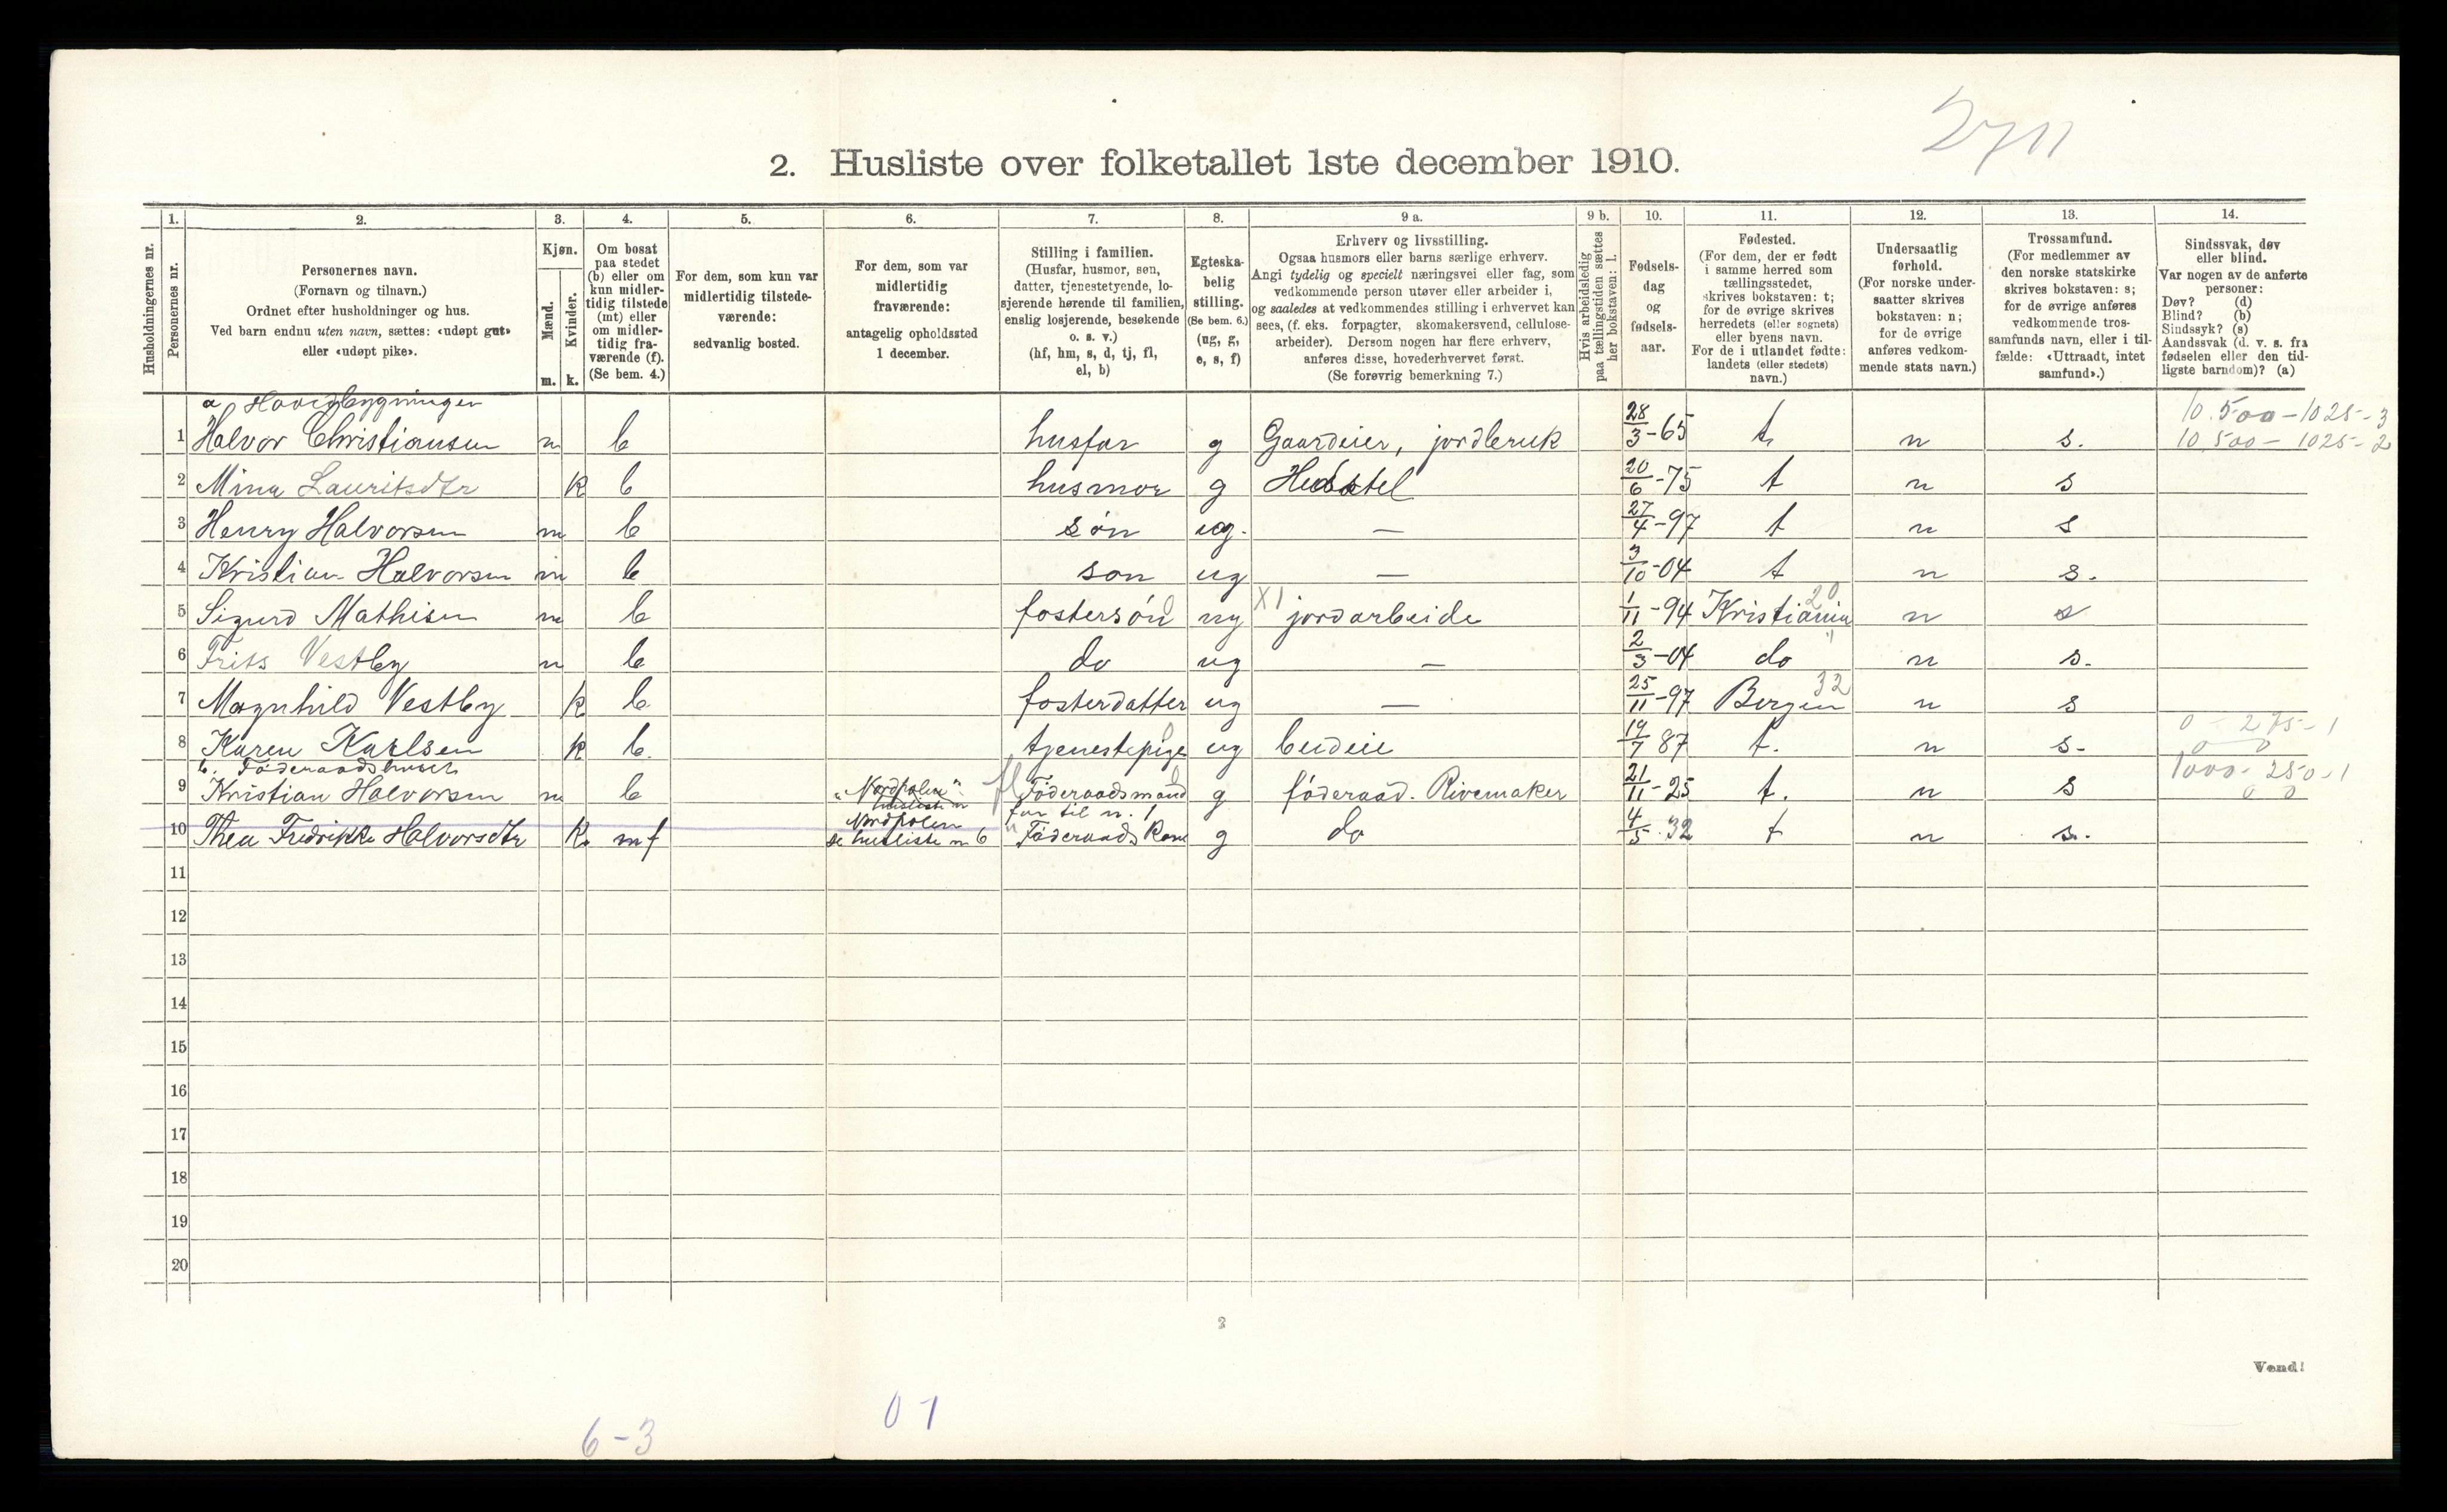 2711
2. Husliste over folketallet 1ste december 1910.
Husholdningernes nr.
1. Personernes nr.
2. Personernes navn. (Fornavn og tilnavn.) Ordnet efter husholdninger og hus. Ved barn endnu uten navn, sættes: «udøpt gut» eller «udøpt pike».
3. Kjøn. Mænd. m. Kvinder. k.
4. Om bosat paa stedet (b) eller om kun midlertidig tilstede (mt) eller om midlertidig fraværende (f). (Se bem. 4.)
5. For dem, som kun var midlertidig tilstedeværende: sedvanlig bosted.
6. For dem, som var midlertidig fraværende: antagelig opholdssted 1 december.
7. Stilling i familien. (Husfar, husmor, søn, datter, tjenestetyende, losjerende hørende til familien, enslig losjerende, besøkende o. s. v.) (hf, hm, s, d, tj, fl, el, b)
8. Egteskabelig stilling. (Se bem. 6.) (ug, g, e, s, f)
9 a. Erhverv og livsstilling. Ogsaa husmors eller barns særlige erhverv. Angi tydelig og specielt næringsvei eller fag, som vedkommende person utøver eller arbeider i, og saaledes at vedkommendes stilling i erhvervet kan sees, (f. eks. forpagter, skomakersvend, cellulosearbeider). Dersom nogen har flere erhverv, anføres disse, hovederhvervet først. (Se forøvrig bemerkning 7.)
9 b. Hvis arbeidsledig paa tællingstiden sættes her bokstaven: l.
10. Fødselsdag og fødselsaar.
11. Fødested. (For dem, der er født i samme herred som tællingsstedet, skrives bokstaven: t; for de øvrige skrives herredets (eller sognets) eller byens navn. For de i utlandet fødte: landets (eller stedets) navn.)
12. Undersaatlig forhold. (For norske undersaatter skrives bokstaven: n; for de øvrige anføres vedkommende stats navn.)
13. Trossamfund. (For medlemmer av den norske statskirke skrives bokstaven: s; for de øvrige anføres vedkommende trossamfunds navn, eller i tilfælde: «Uttraadt, intet samfund».)
14. Sindssvak, døv eller blind. Var nogen av de anførte personer: Døv? (d) Blind? (b) Sindssyk? (s) Aandssvak (d. v. s. fra fødselen eller den tidligste barndom)? (a)
a Hovedbygningen 10.500-1025-3
1 Halvor Christiansen m b husfar g Gaardeier, jordbruk 28/3-65 t. n s. 10,500-1025-2
2 Mina Lauritsdtr k b husmor g Husstel 20/6-75 t n s
3 Henry Halvorsen m b søn ug. — 27/4-97 t n s
4 Kristian Halvorsen m b søn ug — 3/10-04 t n s.
5 Sigurd Mathisen m b fostersøn ug X1 jordarbeide 1/11-94 Kristiania 20 n s
6 Frits Vestby m b do ug — 2/3-04 do " n s.
7 Magnhild Vestby k b fosterdatter ug — 25/11-97 Bergen 32 n s
8 Karen Karlsen k b. tjenestepige ug budeie 19/7 87 t. n s- 0-275-1
b. Føderaadshuset 0 0
9 Kristian Halvorsen m b "Nordpolen" husliste n fl Føderaadsmand far til n. 1 g føderaad. Rivemaker 21/11-25 t. n s 1000-250-1 0 0
10 Thea Fredrikke Halvorsdtr k. mf Nordpolen se husliste n 6 " Føderaads Kone g do 4/5-32 t n s.
11
12
13
14
15
16
17
18
19
20
2
Vend!
6-3
01